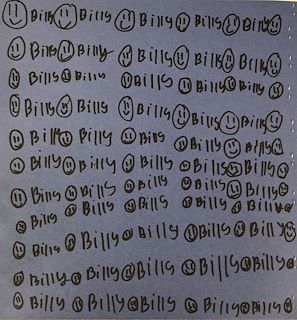 Billy Billy Billy Billy Billy
Billy Billy Billy Billy Billy
Billy Billy Billy Billy Billy
Billy Billy Billy Billy Billy
Billy Billy Billy Billy Billy
Billy Billy Billy Billy Billy
Billy Billy Billy Billy Billy
Billy Billy Billy Billy Billy
Billy Billy Billy Billy Billy
Billy Billy Billy Billy Billy
Billy Billy Billy Billy Billy